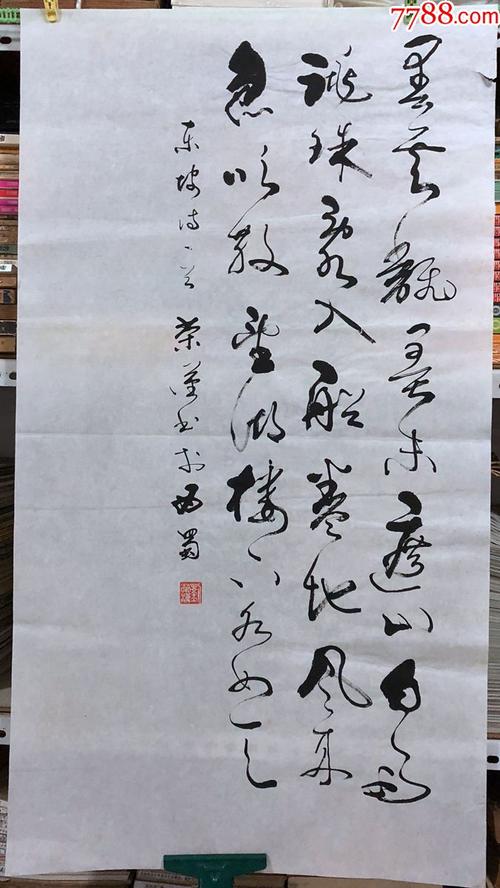 7788.com
黑云翻墨未遮山白雨
跳珠乱入船卷地风来
忽吹散望湖楼下水如天
东坡诗一首 荣书于西蜀